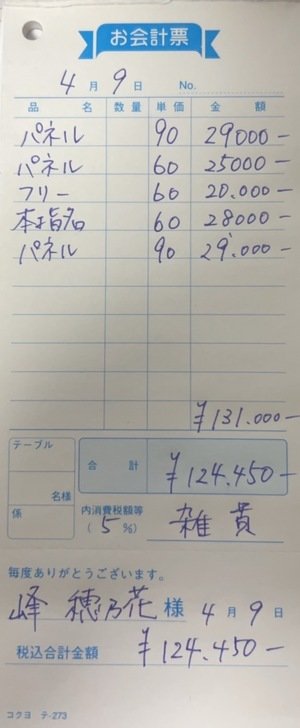 お会計票
4月9日 No.
品名 数量 単価 金額
パネル 90 29000-
パネル 60 25000-
フリー 60 20.000-
本指名 60 28000-
パネル 90 29.000-
¥131.000-
テーブル
名様
合計 ¥124.450-
係
内消費税額等
(5%) 雑貴
毎度ありがとうございます。
峰 穂乃花 様 4月9日
税込合計金額 ¥124.450-
コクヨ テ-273